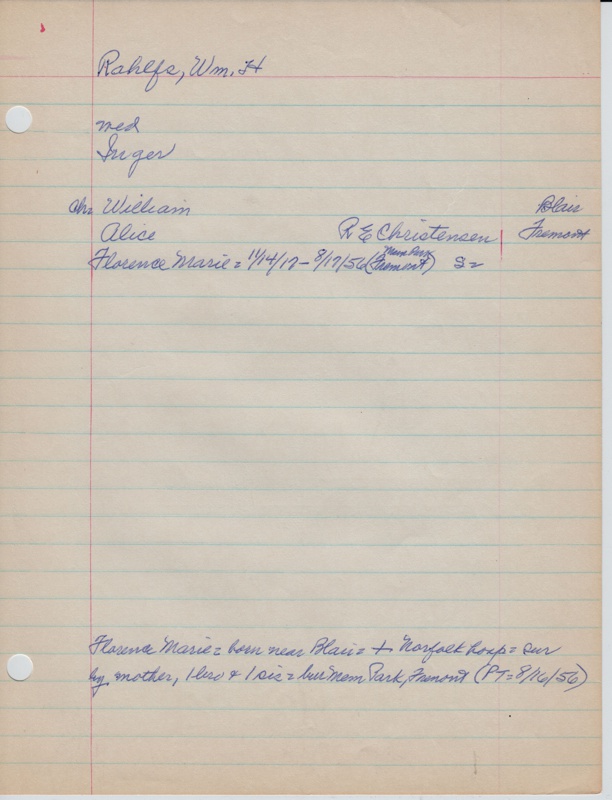 Rahlfs, Wm. H
med
Inger
ch: William Blair
Alice R E Christensen Fremont
Florence Marie = 11/14/17 - 8/17/56 (Mem Park Fremont) S=
Florence Marie = born near Blair = + Norfolk hosp = sur
by mother, 1 bro & 1 sis = bur Mem Park, Fremont (PT = 8/16/56)